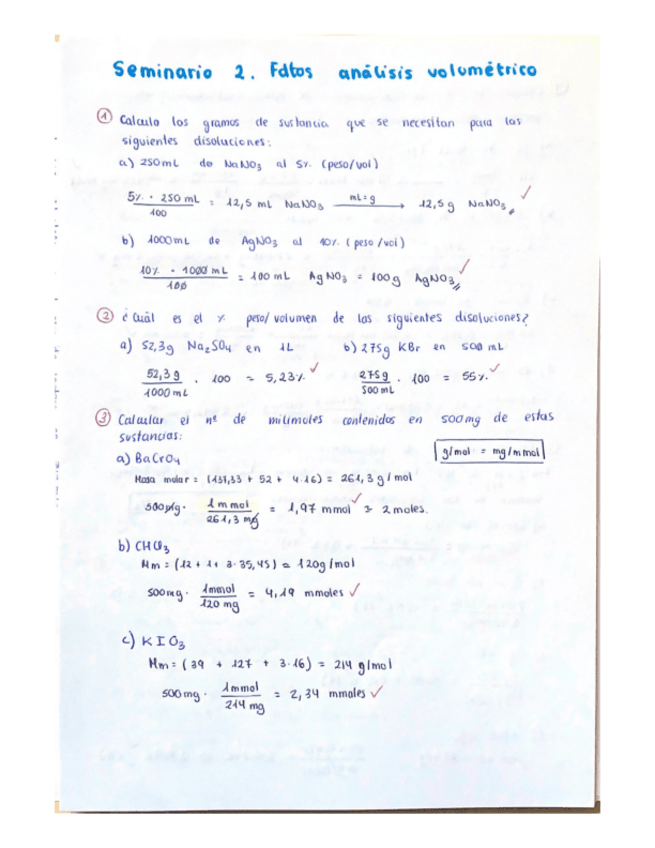 Seminario 2. Fdtos análisis volumétrico
① Calcula los gramos de sustancia que se necesitan para las
siguientes disoluciones:
a) 250mL de NaNO3 al 5% (peso/vol)
5% · 250 mL / 100 = 12,5 mL NaNO3 mL=g → 12,5g NaNO3 ✓
b) 1000mL de AgNO3 al 10% (peso/vol)
10% · 1000 mL / 100 = 100 mL AgNO3 = 100g AgNO3 ✓
② ¿Cuál es el % peso/volumen de las siguientes disoluciones?
a) 52,3g Na2SO4 en 1L b) 275g KBr en 500 mL
52,3 g / 1000 mL · 100 = 5,23% ✓ 275g / 500 mL · 100 = 55% ✓
③ Calcular el nº de milimoles contenidos en 500mg de estas
sustancias:
g/mol = mg/mmol
a) BaCrO4
Masa molar = (137,33 + 52 + 4·16) = 261,3 g/mol
500mg · 1 mmol / 261,3 mg = 1,97 mmol ✓ ≈ 2 moles.
b) CHCl3
Mm = (12 + 1 + 3·35,45) = 120g/mol
500mg · 1mmol / 120 mg = 4,19 mmoles ✓
c) KIO3
Mm = (39 + 127 + 3·16) = 214 g/mol
500mg · 1mmol / 214 mg = 2,34 mmoles ✓